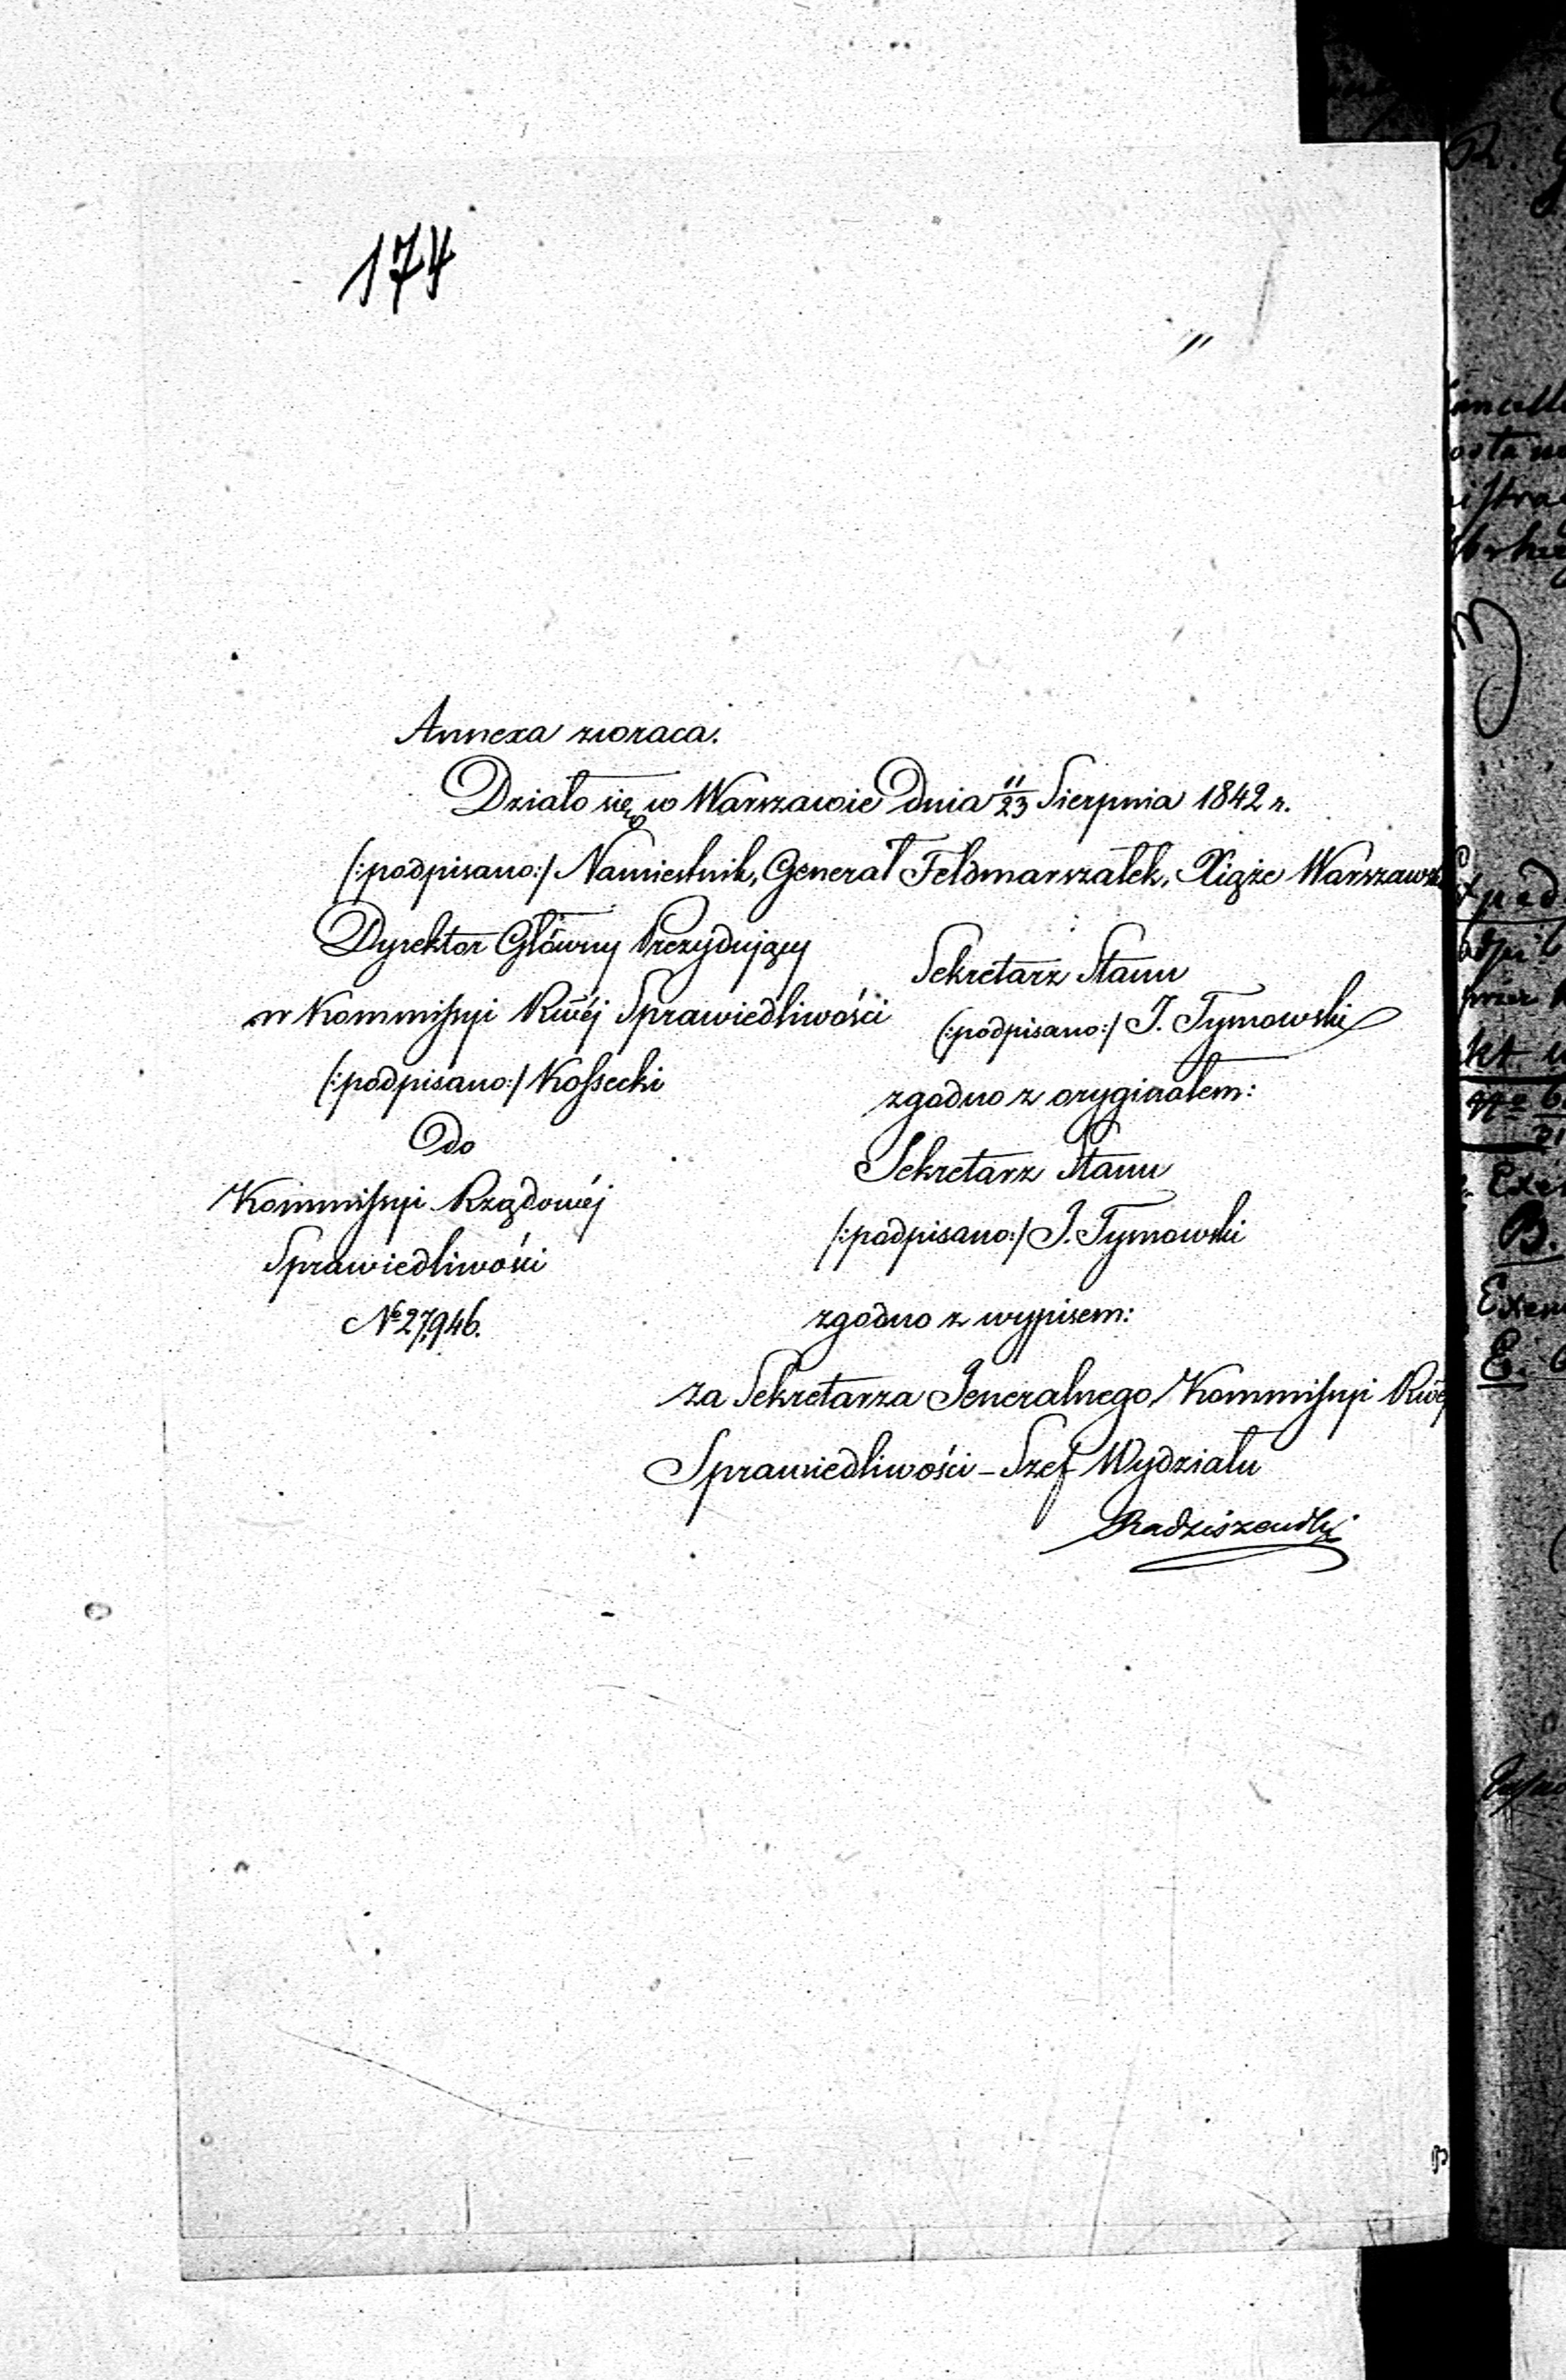 174
Annexa zwraca.
Działo się w Warszawie Dnia 11/23 Sierpnia 1842 r.
(:podpisano:) Namiestnik, Generał Feldmarszałek, Xiąże Warszaws
Dyrektor Główny Prezydujący
w Kommissyi Rwéj Sprawiedliwości
(:podpisano:) Kossecki
Sekretarz Stanu
(:podpisano:) J. Tymowski
zgodno z oryginałem:
Sekretarz Stanu
(:podpisano:) J. Tymowski
Do
Kommissyi Rządowéj
Sprawiedliwości
No 27,946.
zgodno z wypisem:
za Sekretarza Jeneralnego Kommissyi Rwéj
Sprawiedliwości – Szef Wydziału
Radziszewski